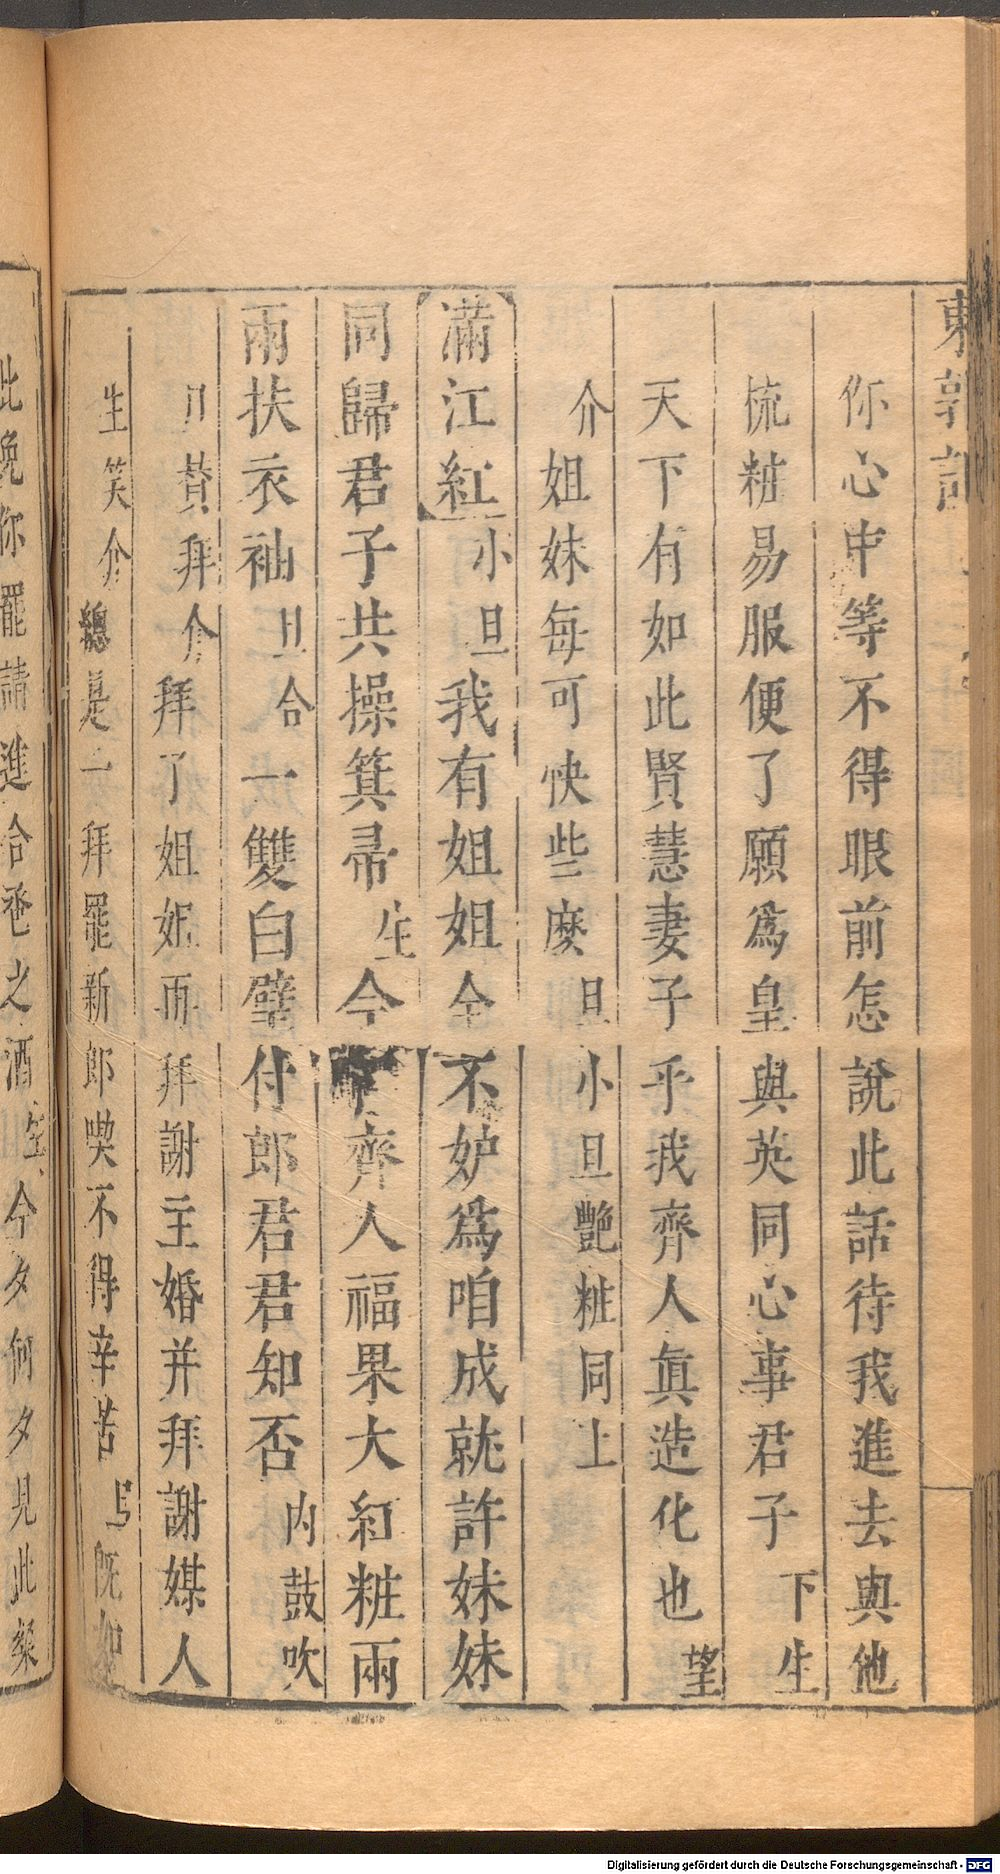 東郭記
你心中等不得眼前怎說此話待我進去與他
梳粧易服便了願爲皇與英同心事君子下生
天下有如此賢慧妻子乎我齊人眞造化也望
介姐妹每可快些麽旦小旦艷粧同上
滿江紅小旦我有姐姐全不妒爲咱成就許妹妹
同歸君子共操箕帚生今齊人福果大紅粧兩
兩扶衣袖旦合一雙白璧付郎君君知否內鼓吹
丑賛拜介拜了姐姐再拜謝主婚并拜謝媒人
生笑介總是一拜罷新郎喫不得辛苦旦旣如
此晚你罷請進合巹之酒生今夕何夕見此粲
Digitalisierung gefördert durch die Deutsche Forschungsgemeinschaft - DFG